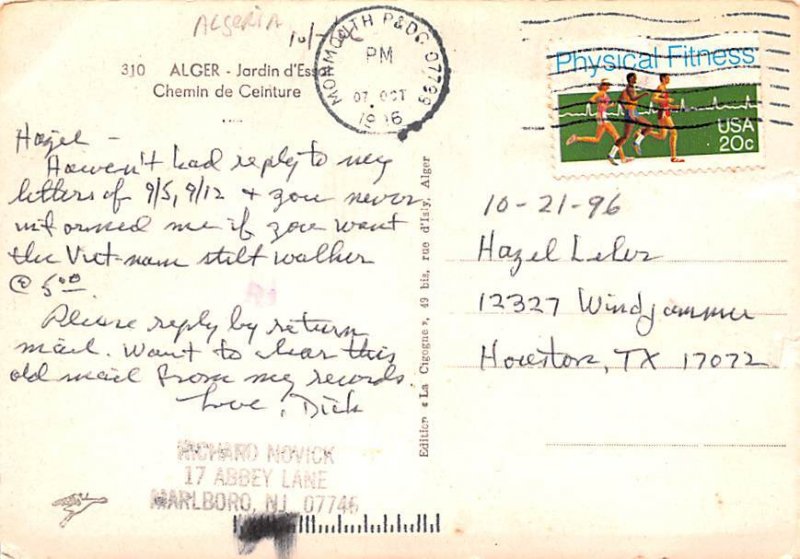 ALGERIA
10/
310 ALGER - Jardin d'Essa
Chemin de Ceinture
MONMOUTH P&DC 07799
PM
07 OCT
1996
Physical Fitness
USA
20c
Hazel -
Haven't had reply to my
letters of 9/5, 9/12 + you never
informed me if you want
the Viet-nam stilt walker
@ 5.00.
Please reply by return
mail. Want to clear this
old mail from my records.
Love, Dick
RICHARD NOVICK
17 ABBEY LANE
MARLBORO, NJ 07746
Edition « La Cigogne », 49 bis, rue d'Isly, Alger
10-21-96
Hazel
12327 Windjammer
Houston, TX 17072